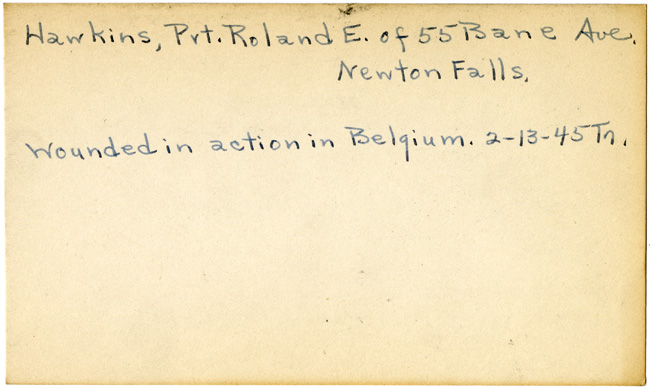 Hawkins, Pvt. Roland E. of 55 Bane Ave.
Newton Falls.
Wounded in action in Belgium. 2-13-45 Tr.